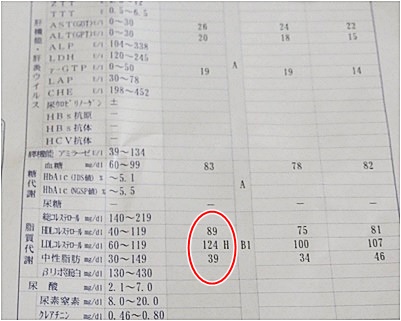 肝機能・肝炎ウイルス
ZTT
TTT 0.5~6.5
AST(GOT) U/l 0~30 26 24 22
ALT(GPT) U/l 0~30 20 18 15
ALP U/l 104~338
LDH U/l 120~245 A
γ-GTP U/l 0~50 19 19 14
LAP U/l 30~78
CHE U/l 198~452
尿ウロビリノーゲン ±
HBs抗原 −
HBs抗体 −
HCV抗体 −
膵機能 アミラーゼ U/l 39~134
糖代謝
血糖 mg/dl 60~99 83 78 82
HbA1c (JDS値) % ~5.1 A
HbA1c (NGSP値) % ~5.5
尿糖 − − − −
脂質代謝
総コレステロール mg/dl 140~219
HDLコレステロール mg/dl 40~119 89 75 81
LDLコレステロール mg/dl 60~119 124 H B1 100 107
中性脂肪 mg/dl 30~149 39 34 46
βリポ蛋白 mg/dl 130~430
尿酸 mg/dl 2.1~7.0
尿素窒素 mg/dl 8.0~20.0
クレアチニン mg/dl 0.46~0.80